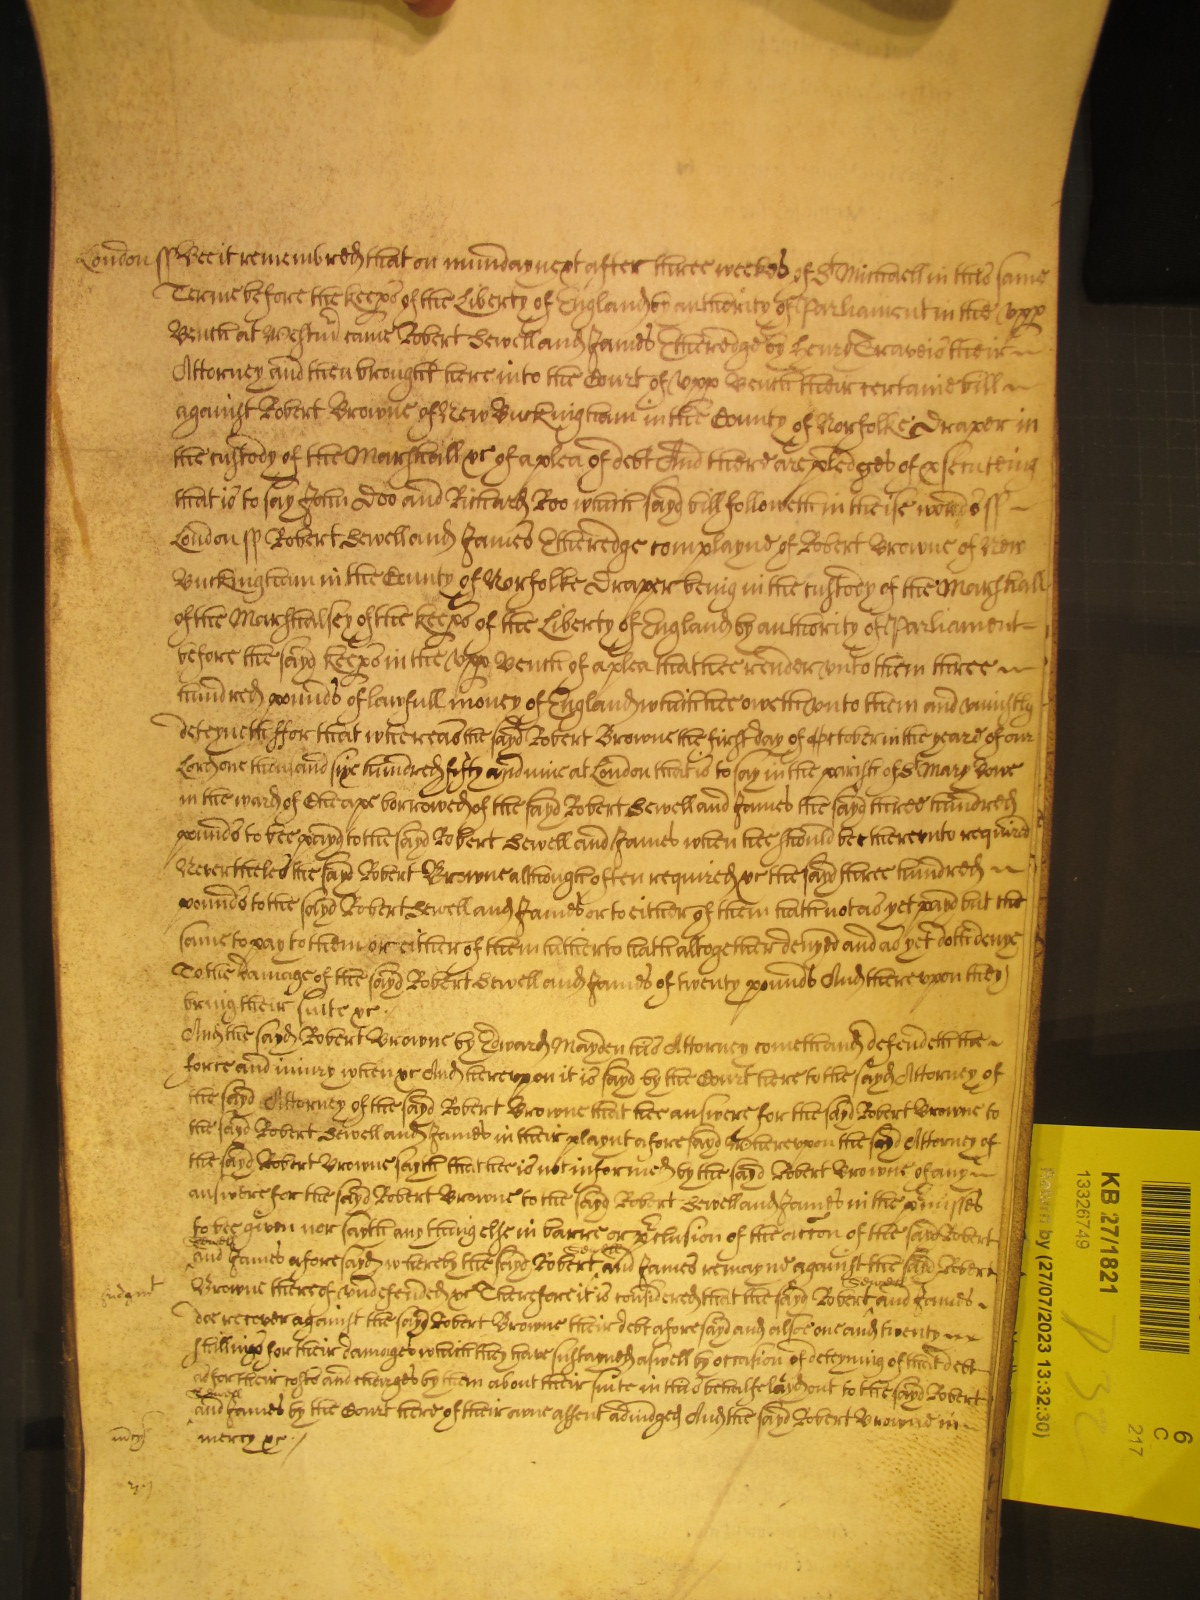 London ss Bee it remembred that on munday next after three weekes of St Michaell in this same
Terme before the keeps of the Liberty of England by authority of Parliament in the Upp
Bench at Westmr came Robert Sewell and James Etheredge by Henry Travers their
Attorney and then brought here into the Court of Upp Bench their certaine bill
against Robert Browne of New Buckingham in the County of Norfolke Draper in
the custody of the Marshall &c of a plea of debt And there are pledges of psecuteing
that is to say John Doo and Richard Roo which sayd bill followeth in theise words ss
London ss Robert Sewell and James Etheredge complayne of Robert Browne of New
Buckingham in the County of Norfolke Draper being in the custody of the Marshall
of the Marshalsey of the keeps of the Liberty of England by authority of Parliament
before the sayd keeps in the Upp Bench of a plea that hee render unto them three
hundred pounds of lawfull money of England which hee oweth unto them and uniustly
deteyneth ffor that whereas the sayd Robert Browne the first day of October in the yeare of our
Lord one thousand six hundred fifty and nine at London that is to say in the parish of St Mary Bowe
in the ward of Cheape borrowed of the sayd Robert Sewell and James the sayd three hundred
pounds to bee payd to the sayd Robert Sewell and James when hee should bee thereunto required
Neverthelesse the sayd Robert Browne although often required &c the sayd three hundred
pounds to the sayd Robert Sewell and James or to either of them hath not as yet payd but the
same to pay to them or either of them hitherto hath altogether denyed and as yet doth denye
To the damage of the sayd Robert Sewell and James of twenty pounds And thereupon they
bring their suite &c
And the sayd Robert Browne by Edward Mayden his Attorney cometh and defendeth the
force and iniury when &c And hereupon it is sayd by the Court here to the sayd Attorney of
the sayd Attorney of the sayd Robert Browne that hee answere for the sayd Robert Browne to
the sayd Robert Sewell and James in their playnt aforesayd whereupon the sayd Attorney of
the sayd Robert Browne sayth that hee is not informed by the sayd Robert Browne of any
answere for the sayd Robert Browne to the sayd Robert Sewell and James in the pmisses
to bee given nor sayth any thing else in barre or pclusion of the accon of the sayd Robert
Sewell
and James aforesayd whereby the sayd Robert Sewell and James remayne against the sayd Robert
Judgmt
Browne thereof undefended &c Therefore it is considered that the sayd Robert Sewell and James
doe recover against the sayd Robert Browne their debt aforesayd and alsoe one and twenty
shillings for their damages which they have susteyned aswell by occasion of deteyning of that debt
as for their costs and charges by them about their suite in this behalfe layd out to the sayd Robert
Sewell
and James by the Court here of their owne assent adiudged And the sayd Robert Browne in
mercy &c
KB 27/1821
13326749
6
C
217
by (27/07/2023 13:32:30)